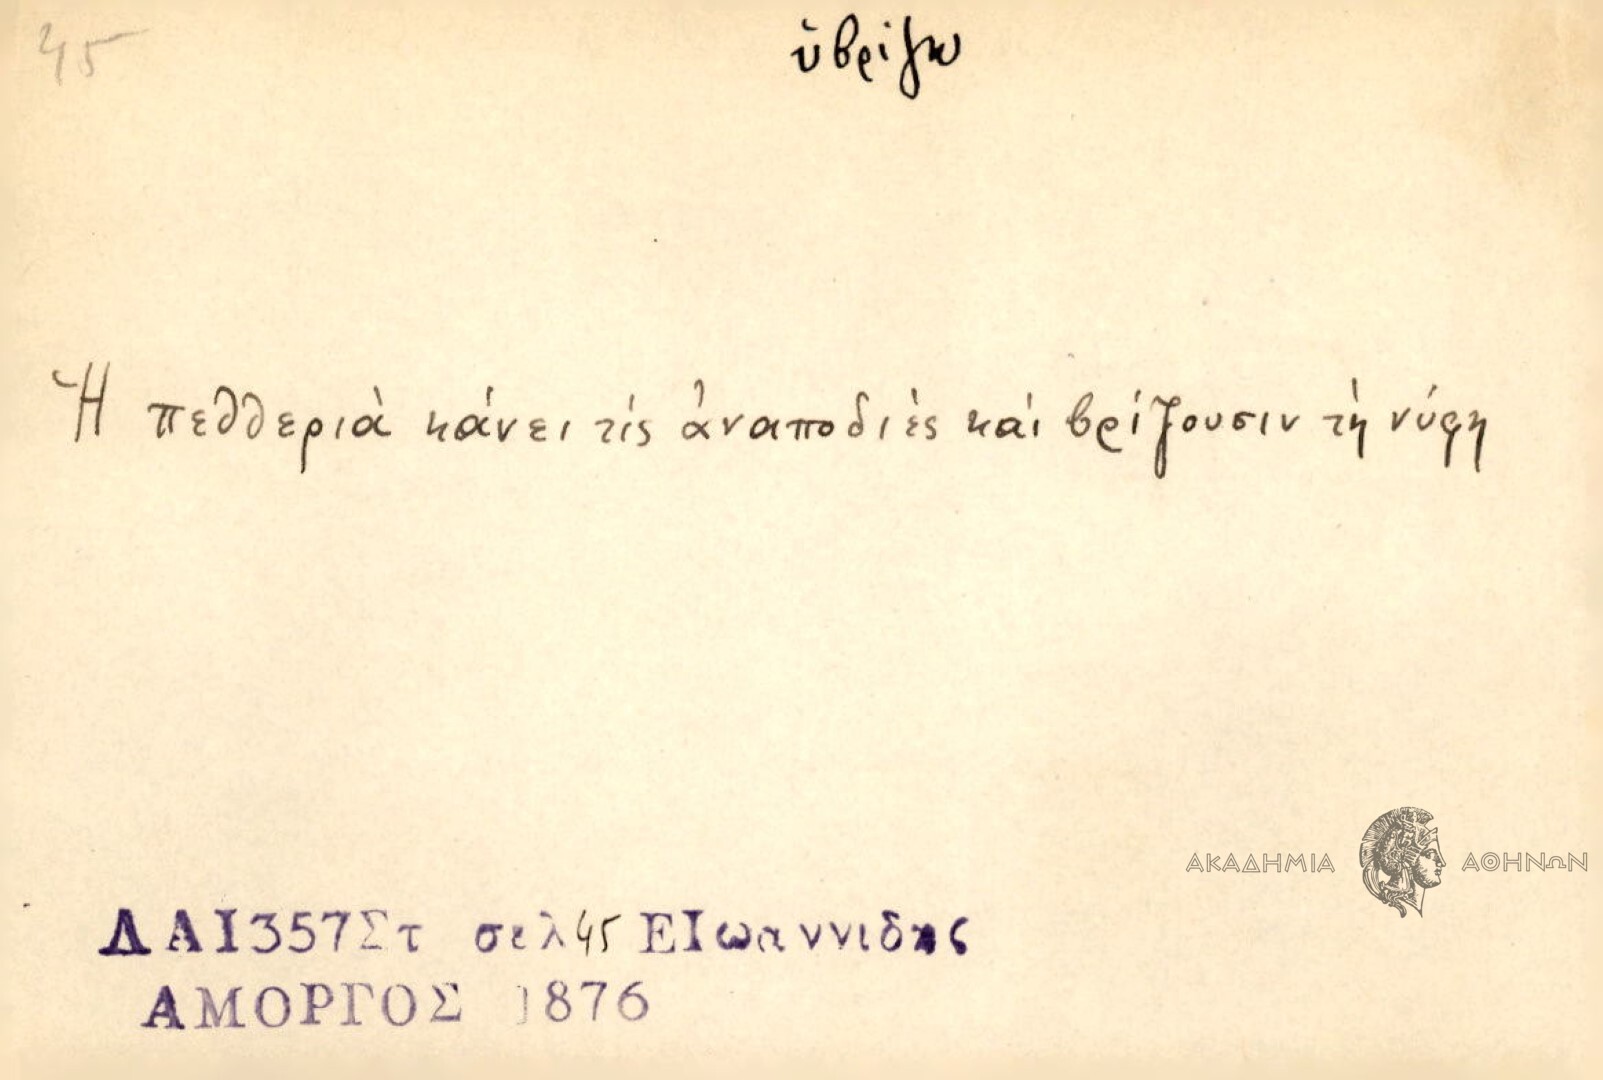 45
ὑβρίζω
Ἡ πεθθεριὰ κάνει τίς ἀναποδιὲς καί βρίζουσιν τὴ νύφη
ΑΚΑΔΗΜΙΑ ΑΘΗΝΩΝ
ΔΑΙ357Στ σελ45 ΕΙωαννιδης
ΑΜΟΡΓΟΣ 1876